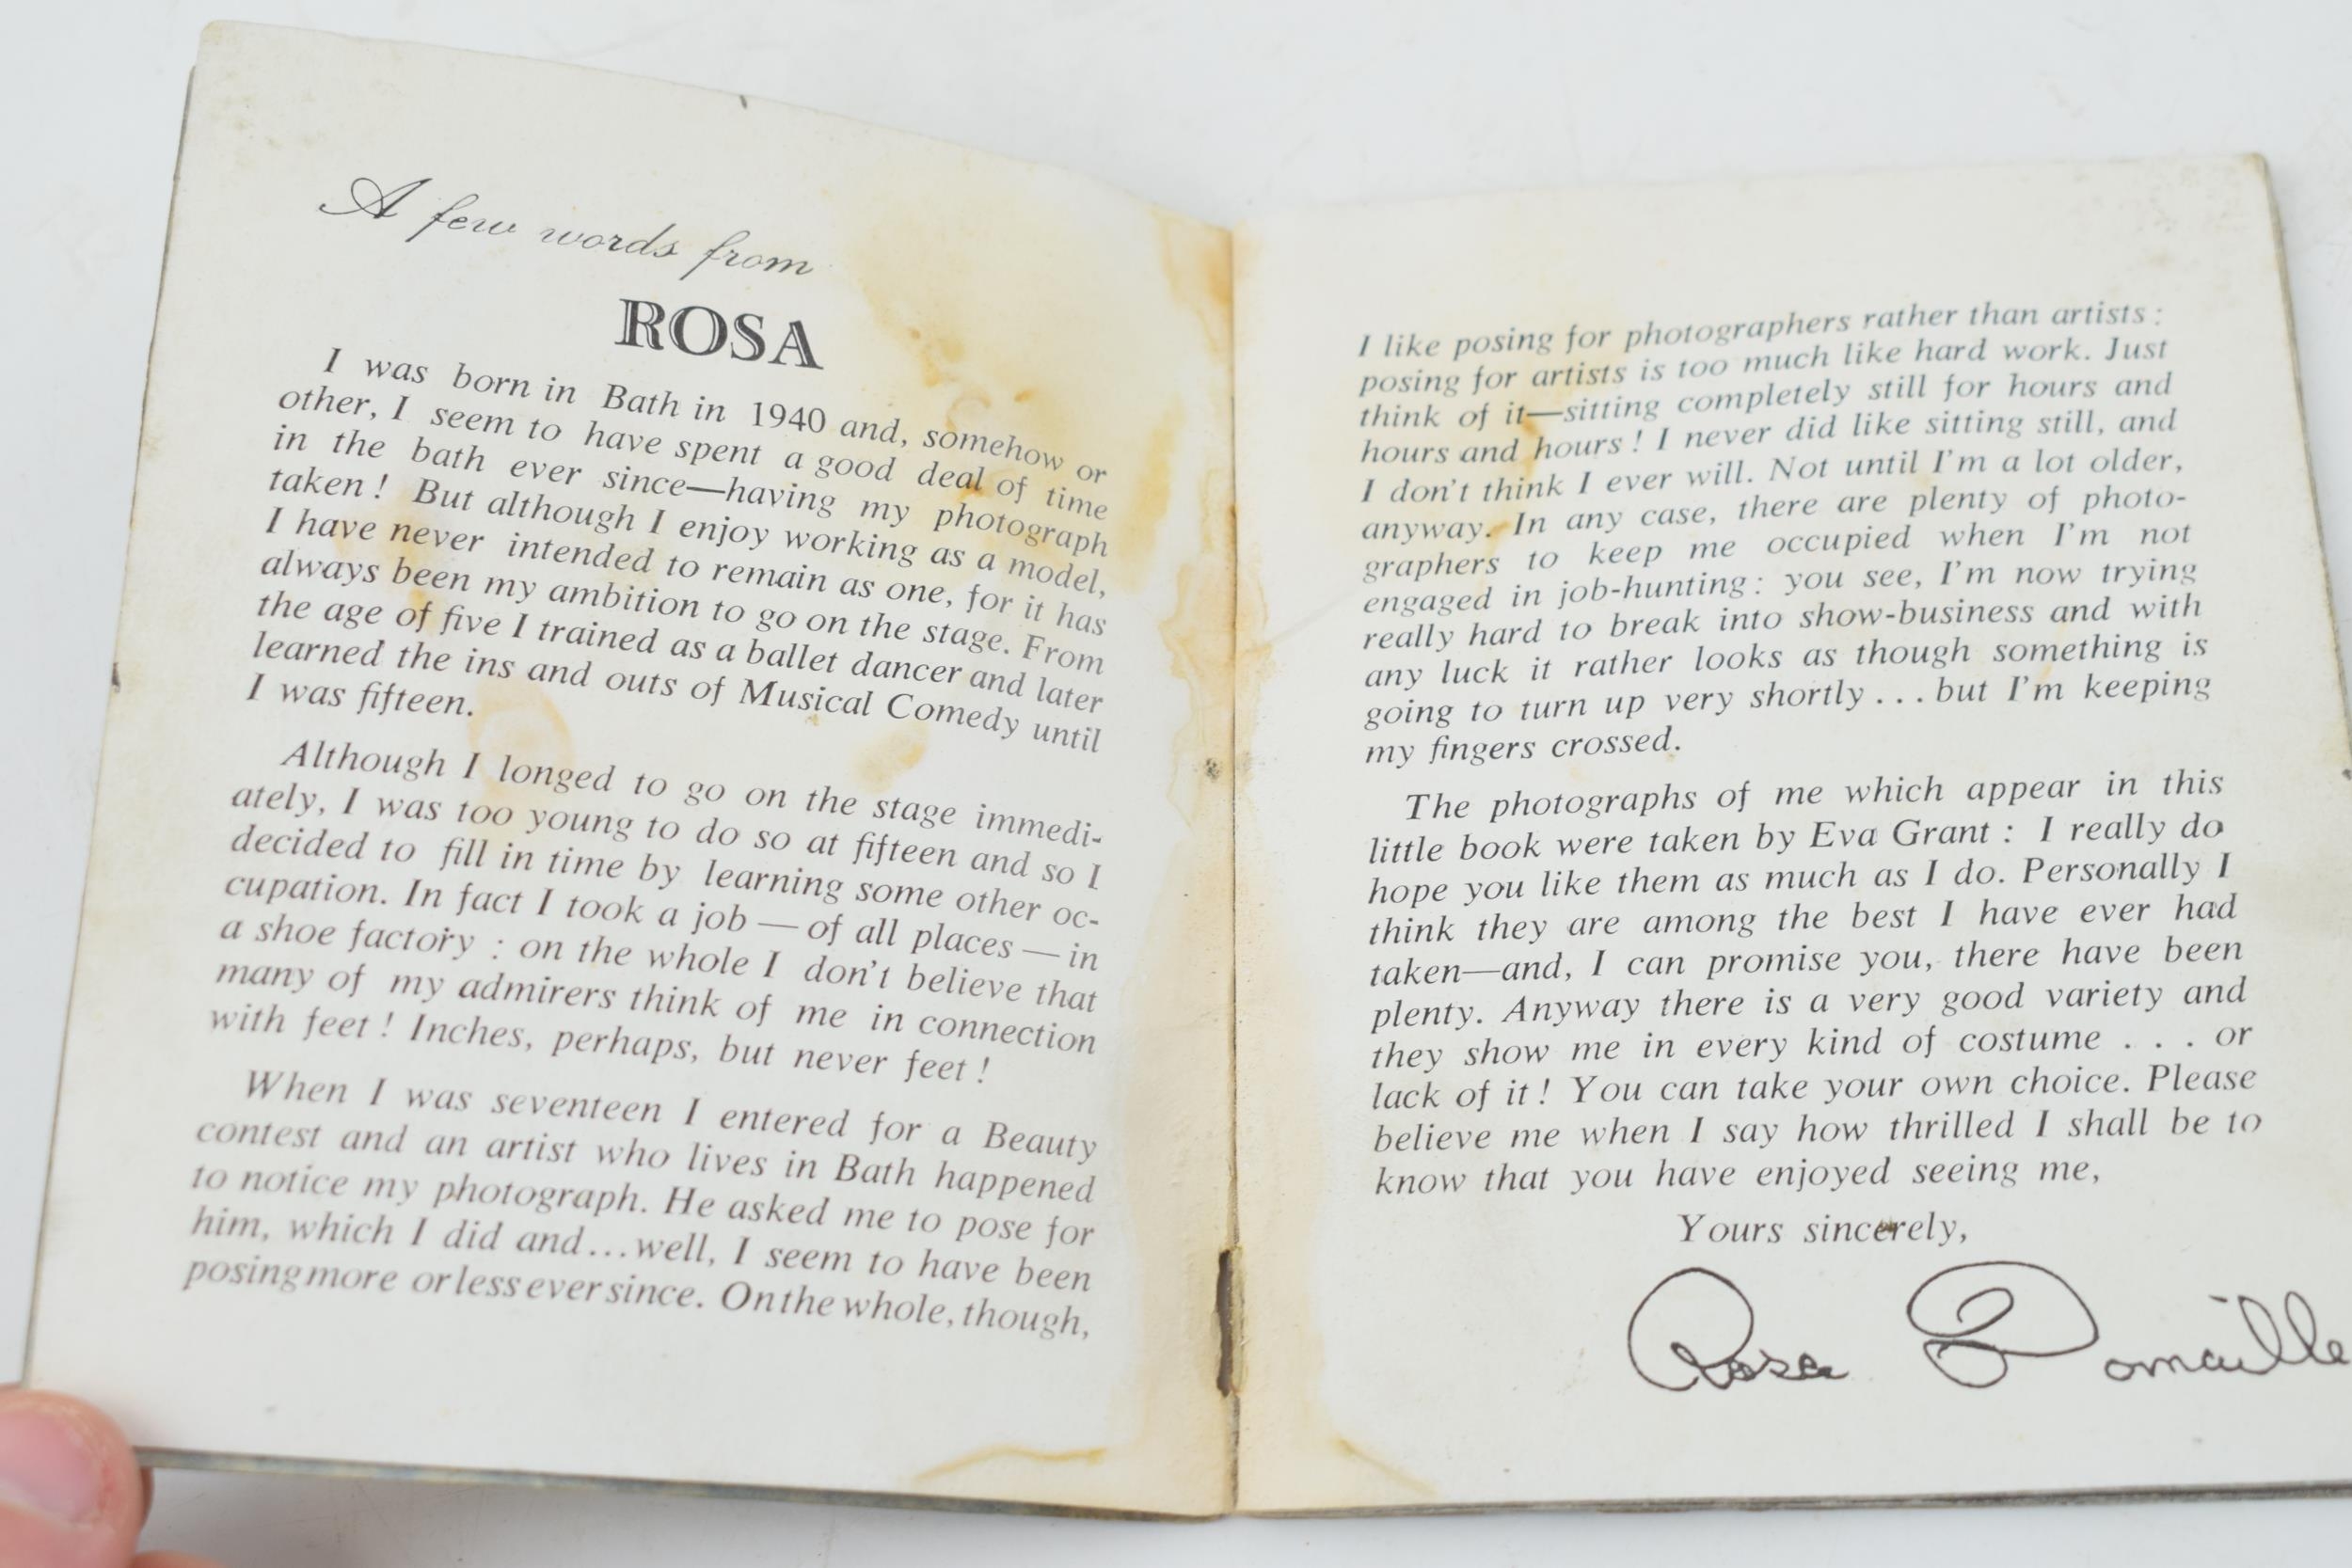 A few words from
ROSA
I was born in Bath in 1940 and, somehow or
other, I seem to have spent a good deal of time
in the bath ever since—having my photograph
taken! But although I enjoy working as a model,
I have never intended to remain as one, for it has
always been my ambition to go on the stage. From
the age of five I trained as a ballet dancer and later
learned the ins and outs of Musical Comedy until
I was fifteen.
Although I longed to go on the stage immedi-
ately, I was too young to do so at fifteen and so I
decided to fill in time by learning some other oc-
cupation. In fact I took a job — of all places — in
a shoe factory : on the whole I don't believe that
many of my admirers think of me in connection
with feet! Inches, perhaps, but never feet!
When I was seventeen I entered for a Beauty
contest and an artist who lives in Bath happened
to notice my photograph. He asked me to pose for
him, which I did and...well, I seem to have been
posing more or less ever since. On the whole, though,
I like posing for photographers rather than artists:
posing for artists is too much like hard work. Just
think of it—sitting completely still for hours and
hours and hours! I never did like sitting still, and
I don't think I ever will. Not until I'm a lot older,
anyway. In any case, there are plenty of photo-
graphers to keep me occupied when I'm not
engaged in job-hunting: you see, I'm now trying
really hard to break into show-business and with
any luck it rather looks as though something is
going to turn up very shortly...but I'm keeping
my fingers crossed.
The photographs of me which appear in this
little book were taken by Eva Grant : I really do
hope you like them as much as I do. Personally I
think they are among the best I have ever had
taken—and, I can promise you, there have been
plenty. Anyway there is a very good variety and
they show me in every kind of costume . . . or
lack of it! You can take your own choice. Please
believe me when I say how thrilled I shall be to
know that you have enjoyed seeing me,
Yours sincerely,
Rosa Domaille